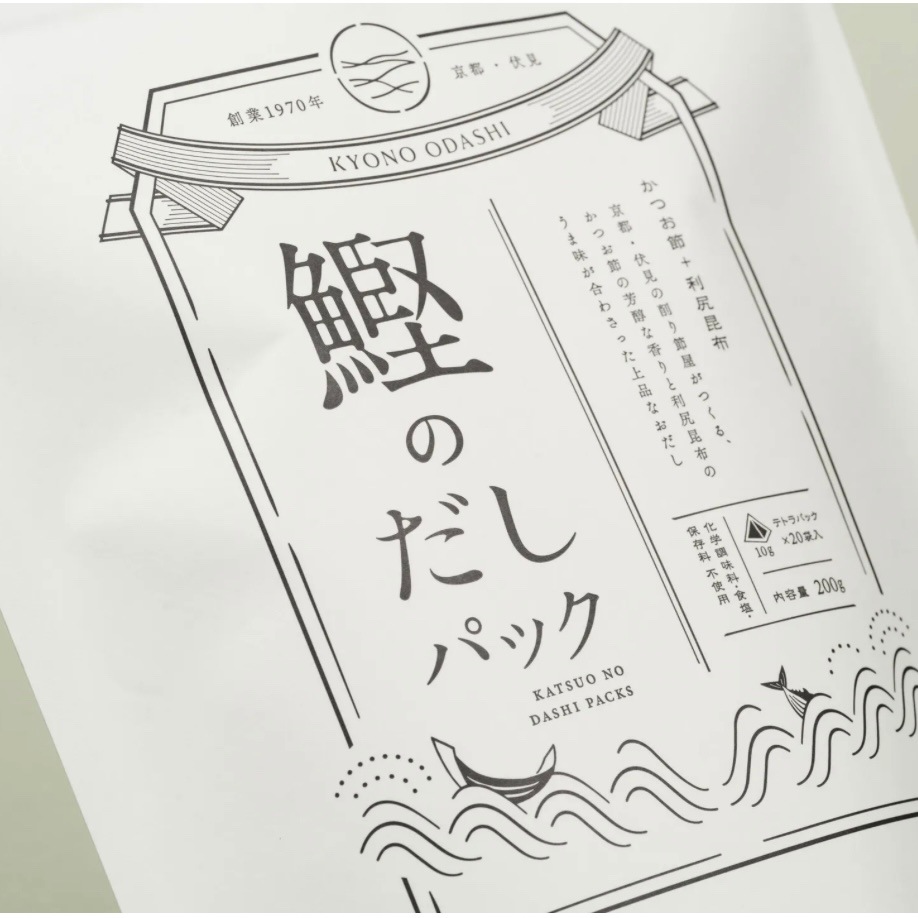 創業1970年
京都・伏見
KYONO ODASHI
かつお節+利尻昆布
京都・伏見の削り節屋がつくる、
かつお節の芳醇な香りと利尻昆布の
うま味が合わさった上品なおだし
鰹
の
だし
パック
KATSUO NO
DASHI PACKS
テトラパック
×20袋入
10g
内容量 200g
化学調味料・食塩・
保存料 不使用